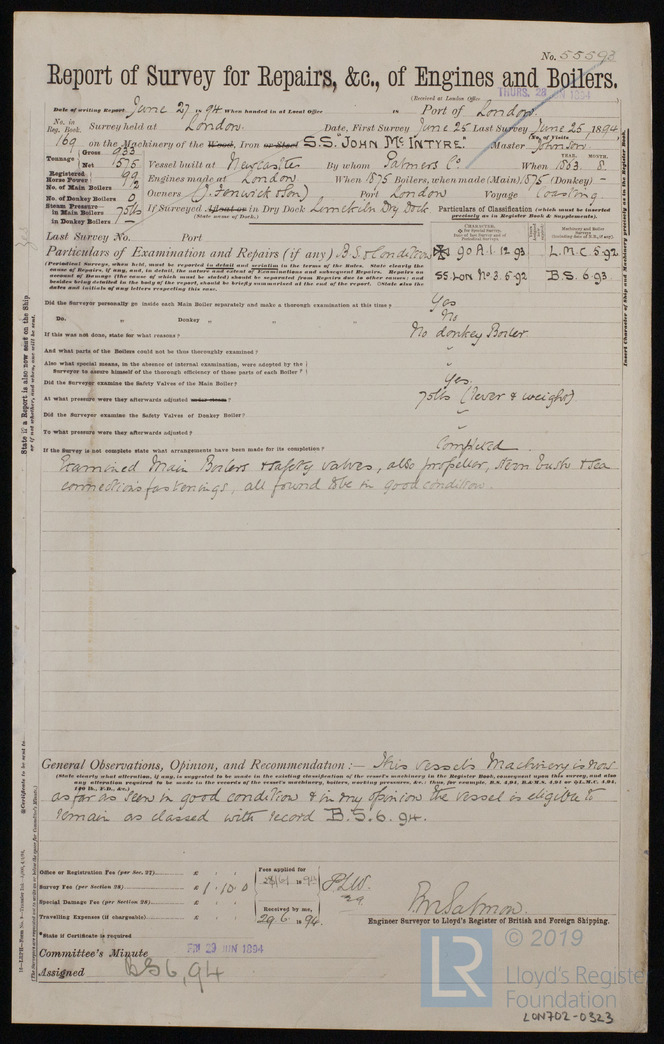 No. 55593
Report of Survey for Repairs, &c., of Engines and Boilers.
(Received at London Office THURS. 28 JUN 1894)
Date of writing Report June 27 1894 When handed in at Local Office 18 Port of London.
No. in Reg. Book. Survey held at London. Date, First Survey June 25 Last Survey June 25, 1894
(No. of Visits
169 on the Machinery of the Wood, Iron or Steel S.S. "JOHN McINTYRE." Master Johnson.
Tonnage Gross 933 Net 575 Vessel built at Newcastle By whom Palmers Co. When YEAR. 1863. MONTH. 8
Registered Horse Power 99 Engines made at London When 1875 Boilers, when made (Main) 1875 (Donkey) –
No. of Main Boilers 2 Owners (J. Fenwick & Son) Port London Voyage Coasting.
No. of Donkey Boilers 0
Steam Pressure— in Main Boilers 70 lbs If Surveyed Afloat or in Dry Dock Limekiln Dry Dock
(State name of Dock.)
in Donkey Boilers –
Particulars of Classification (which must be inserted precisely as in Register Book & Supplements).
Last Survey No. Port
Particulars of Examination and Repairs (if any) B.S. & Condition
90 A.1. 12.93 L.M.C. 5.92
SS. LON No 3. 6-92 B.S. 6.93
(Periodical Surveys, when held, must be reported in detail and seriatim in the terms of the Rules. State clearly the
cause of Repairs, if any, and, in detail, the nature and extent of Examinations and subsequent Repairs. Repairs on
account of Damage (the cause of which must be stated) should be separated from Repairs due to other causes; and
besides being detailed in the body of the report, should be briefly summarised at the end of the report. State also the
dates and initials of any letters respecting this case.
Did the Surveyor personally go inside each Main Boiler separately and make a thorough examination at this time? Yes
Do. „ Donkey „ „ „ ? No
If this was not done, state for what reasons? No donkey Boiler.
And what parts of the Boilers could not be thus thoroughly examined? "
Also what special means, in the absence of internal examination, were adopted by the
Surveyor to assure himself of the thorough efficiency of those parts of each Boiler? "
Did the Surveyor examine the Safety Valves of the Main Boiler? Yes.
At what pressure were they afterwards adjusted under steam? 70 lbs (lever & weight)
Did the Surveyor examine the Safety Valves of Donkey Boiler? "
To what pressure were they afterwards adjusted? "
If the Survey is not complete state what arrangements have been made for its completion? Completed
Examined Main Boilers & safety valves, also propeller, stern bush & sea
connections fastenings, all found to be in good condition.
General Observations, Opinion, and Recommendation:— This vessel's Machinery is now
(State clearly what alteration, if any, is suggested to be made in the existing classification of the vessel's machinery in the Register Book, consequent upon this survey, and also
any alteration required to be made in the records of the vessel's machinery, boilers, working pressure, &c.; thus, for example, B.S. 4,91, B.&M.S. 4,91 or L.M.C. 4,91,
140 lb., F.D., &c.)
as far as seen in good condition & in my opinion the vessel is eligible to
remain as classed with record B.S. 6. 94.
Office or Registration Fee (per Sec. 27) £
Survey Fee (per Section 28) £ 1.10.0
Special Damage Fee (per Section 28) £
Travelling Expenses (if chargeable) £
Fees applied for
Received by me,
29.6 1894
*State if Certificate is required
Engineer Surveyor to Lloyd's Register of British and Foreign Shipping.
Committee's Minute FRI 29 JUN 1894
Assigned B.S 6,94
State if a Report is also now sent on the Ship
or if not whether, and when, one will be sent.
Insert Character of Ship and Machinery precisely as in the Register Book.
Certificate to be sent to
LR © 2019
Lloyd's Register
Foundation
LON702-0323